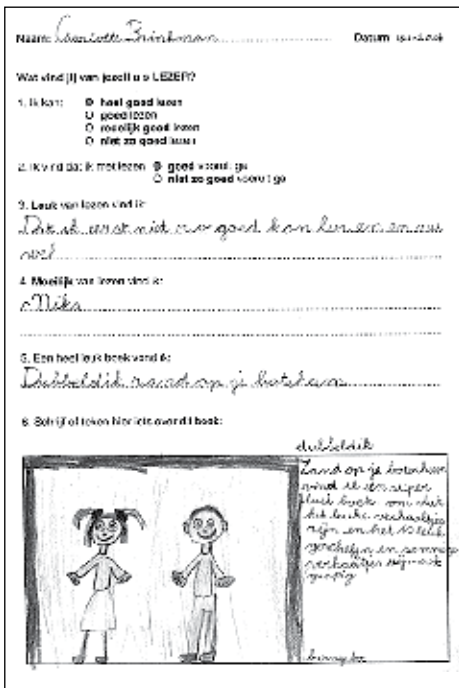 Naam: Charlotte Brinkman Datum
Wat vind jij van jezelf als LEZER?
1. Ik kan: heel goed lezen
goed lezen
redelijk goed lezen
niet zo goed lezen
2. Ik vind dat ik met lezen goed vooruit ga
niet zo goed vooruit ga
3. Leuk van lezen vind ik:
Dat ik eerst niet zo goed kon lezen en nu
wel
4. Moeilijk van lezen vind ik:
Niks
5. Een heel leuk boek vond ik:
Dubbeldik zand op je boterham
6. Schrijf of teken hier iets over dit boek:
dubbeldik
Zand op je boterham
vind ik een super
boek om dat
het leuke verhaaltjes
zijn en het is leuk
geschreven en sommige
verhaaltjes zijn ook